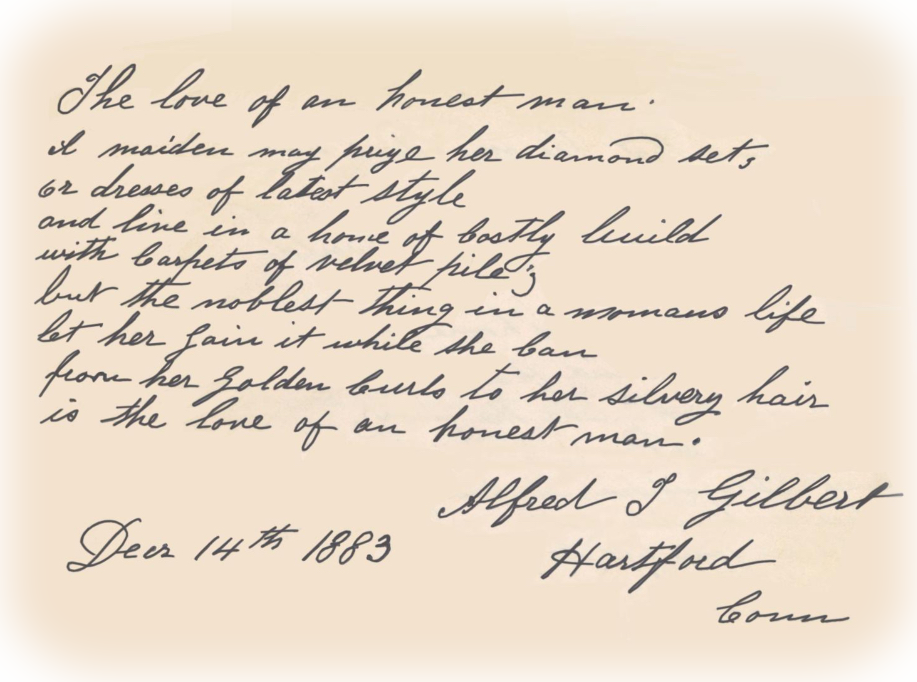 The love of an honest man.
A maiden may prize her diamond set,
or dresses of latest style
and live in a home of Costly build
with Carpets of velvet pile;
but the noblest thing in a womans life
let her gain it while she Can
from her golden Curls to her silvery hair
is the love of an honest man.
Alfred J Gilbert
Decr 14th 1883
Hartford
Conn